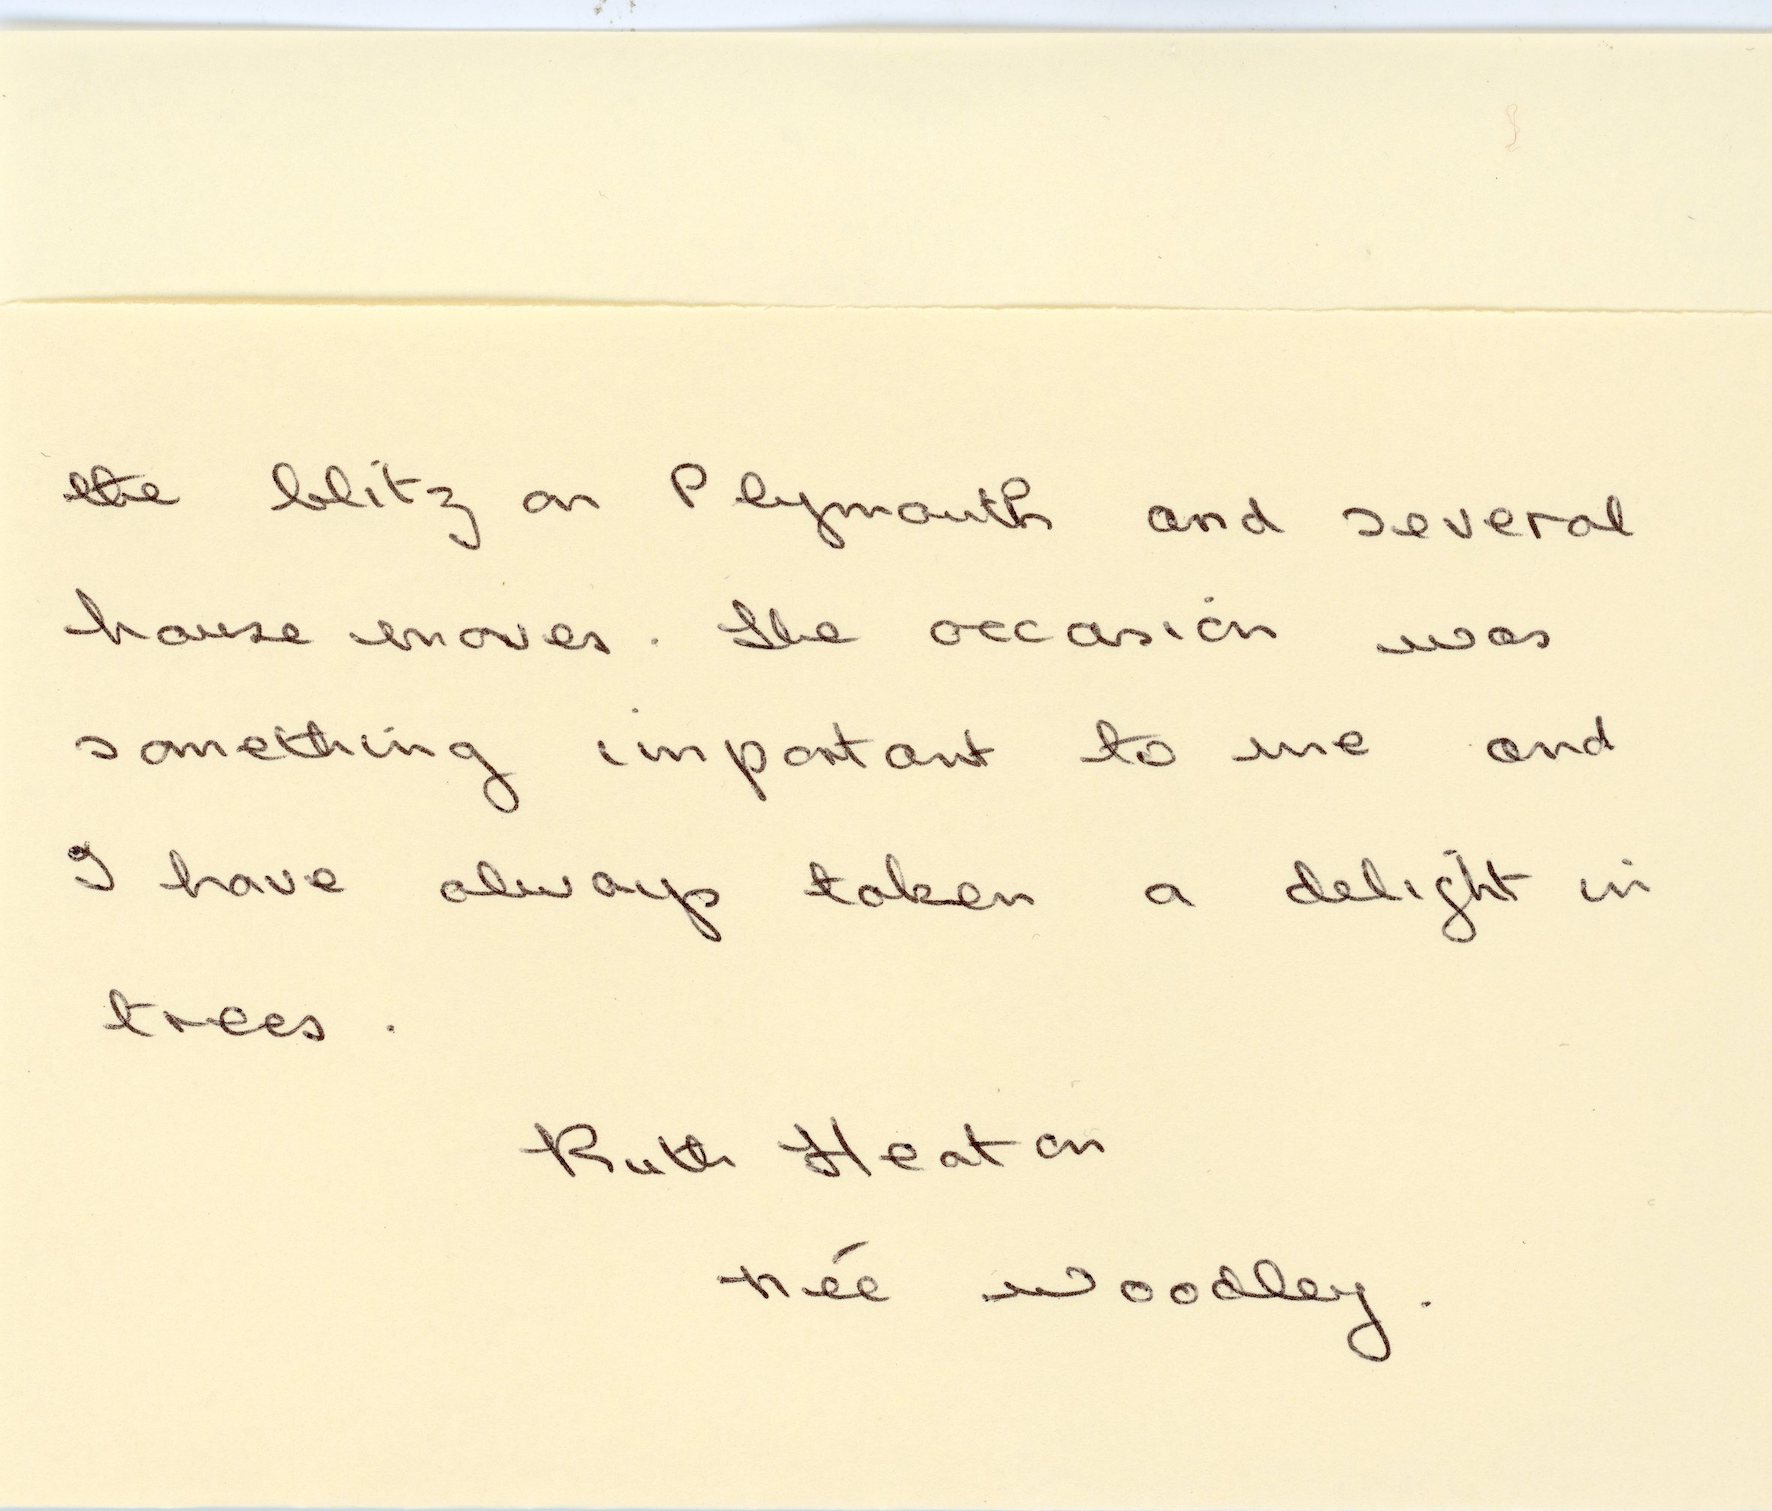 the blitz on Plymouth and several
house moves. The occasion was
something important to me and
I have always taken a delight in
trees.
Ruth Heaton
née Woodley.